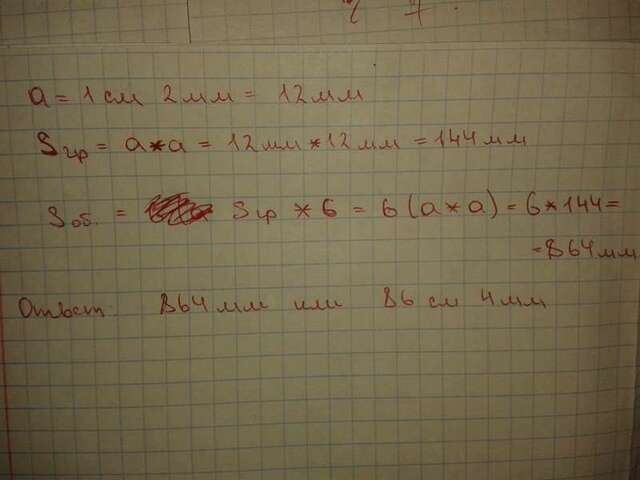 a = 1 см 2 мм = 12 мм
Sгр = a*a = 12 мм * 12 мм = 144 мм
Sоб. = Sгр * 6 = 6 (a * a) = 6 * 144 =
= 864 мм
Ответ: 864 мм или 86 см 4 мм